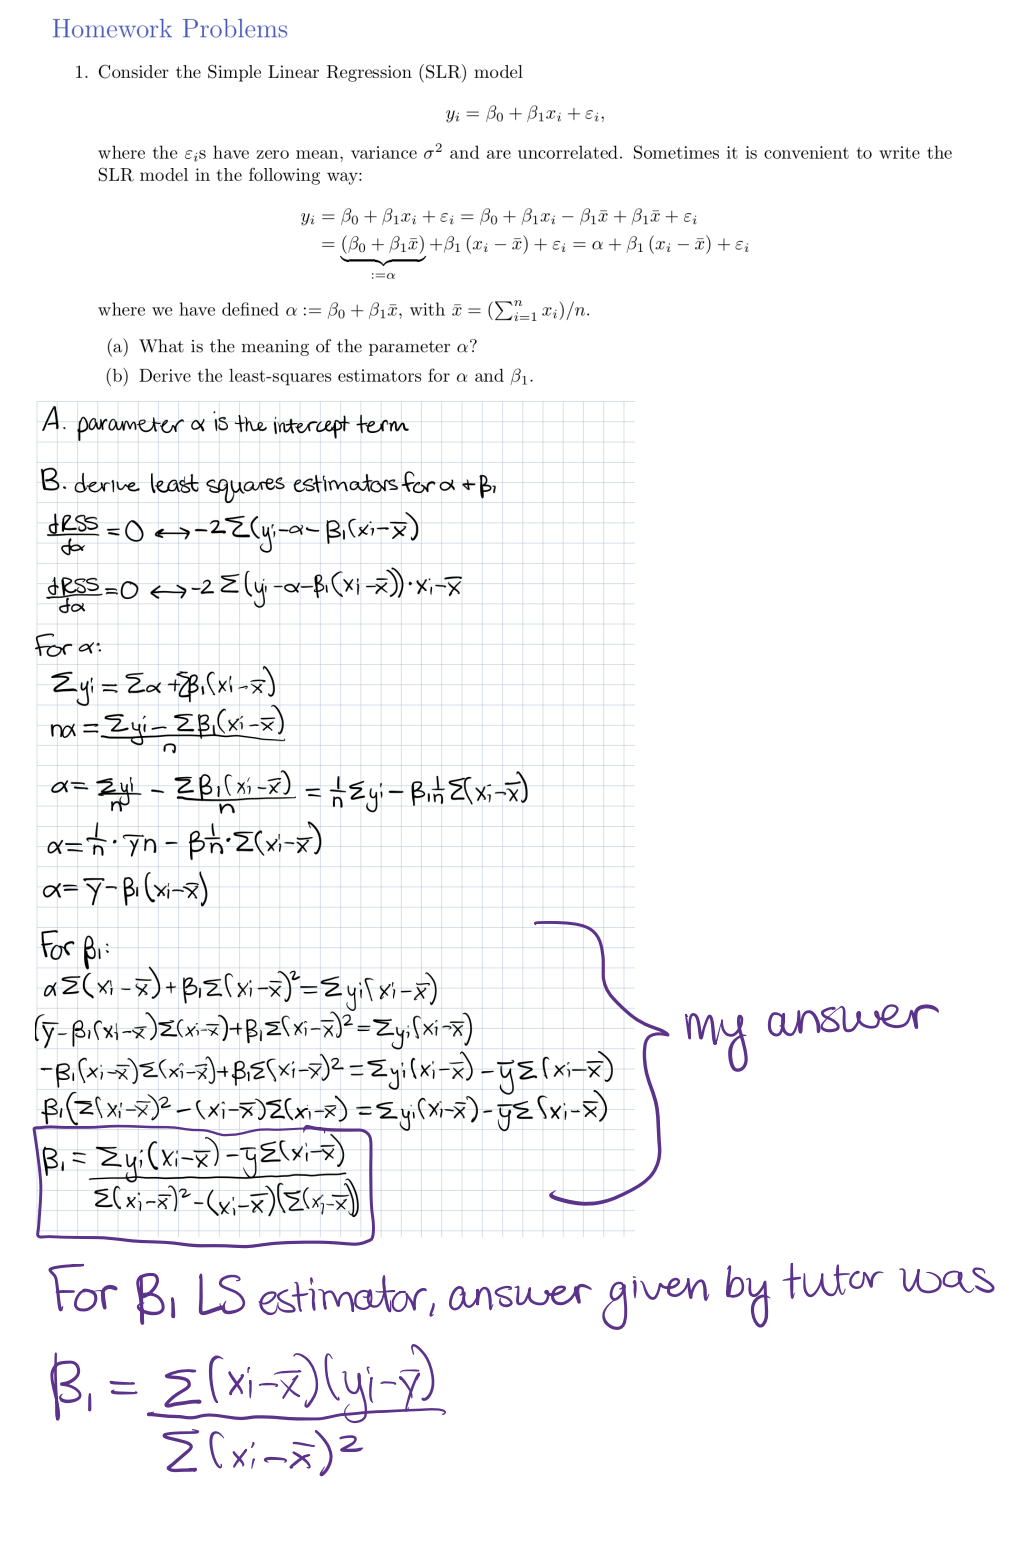 Homework Problems
1. Consider the Simple Linear Regression (SLR) model
yᵢ = β₀ + β₁xᵢ + εᵢ,
where the εᵢs have zero mean, variance σ² and are uncorrelated. Sometimes it is convenient to write the
SLR model in the following way:
yᵢ = β₀ + β₁xᵢ + εᵢ = β₀ + β₁xᵢ − β₁x̄ + β₁x̄ + εᵢ
= (β₀ + β₁x̄) +β₁ (xᵢ − x̄) + εᵢ = α + β₁ (xᵢ − x̄) + εᵢ
:=α
where we have defined α := β₀ + β₁x̄, with x̄ = (∑ⁿᵢ₌₁ xᵢ)/n.
(a) What is the meaning of the parameter α?
(b) Derive the least-squares estimators for α and β₁.
A. parameter α is the intercept term
B. derive least squares estimators for α + β₁
dRSS/dα = 0 ↔ -2Σ(yᵢ-α-β₁(xᵢ-x̄)
dRSS/dα = 0 ↔ -2Σ(yᵢ-α-β₁(xᵢ-x̄))·xᵢ-x̄
For α:
Σyᵢ = Σα + Σβ₁(xᵢ-x̄)
nα = Σyᵢ - Σβ₁(xᵢ-x̄) / n
α = Σyᵢ/n - Σβ₁(xᵢ-x̄)/n = 1/n Σyᵢ - β₁ 1/n Σ(xᵢ-x̄)
α = 1/n · ȳn - β 1/n · Σ(xᵢ-x̄)
α = ȳ - β₁(xᵢ-x̄)
For β₁:
αΣ(xᵢ-x̄) + β₁Σ(xᵢ-x̄)² = Σyᵢ(xᵢ-x̄)
(ȳ-β₁(xᵢ-x̄)Σ(xᵢ-x̄)+β₁Σ(xᵢ-x̄)² = Σyᵢ(xᵢ-x̄)
-β₁(xᵢ-x̄)Σ(xᵢ-x̄)+β₁Σ(xᵢ-x̄)² = Σyᵢ(xᵢ-x̄) - ȳΣ(xᵢ-x̄)
β₁(Σ(xᵢ-x̄)² - (xᵢ-x̄)Σ(xᵢ-x̄) = Σyᵢ(xᵢ-x̄) - ȳΣ(xᵢ-x̄)
β₁ = Σyᵢ(xᵢ-x̄) - ȳΣ(xᵢ-x̄)
Σ(xᵢ-x̄)² - (xᵢ-x̄)(Σ(xᵢ-x̄))
my answer
For β₁ LS estimator, answer given by tutor was
β₁ = Σ(xᵢ-x̄)(yᵢ-ȳ)
Σ(xᵢ-x̄)²